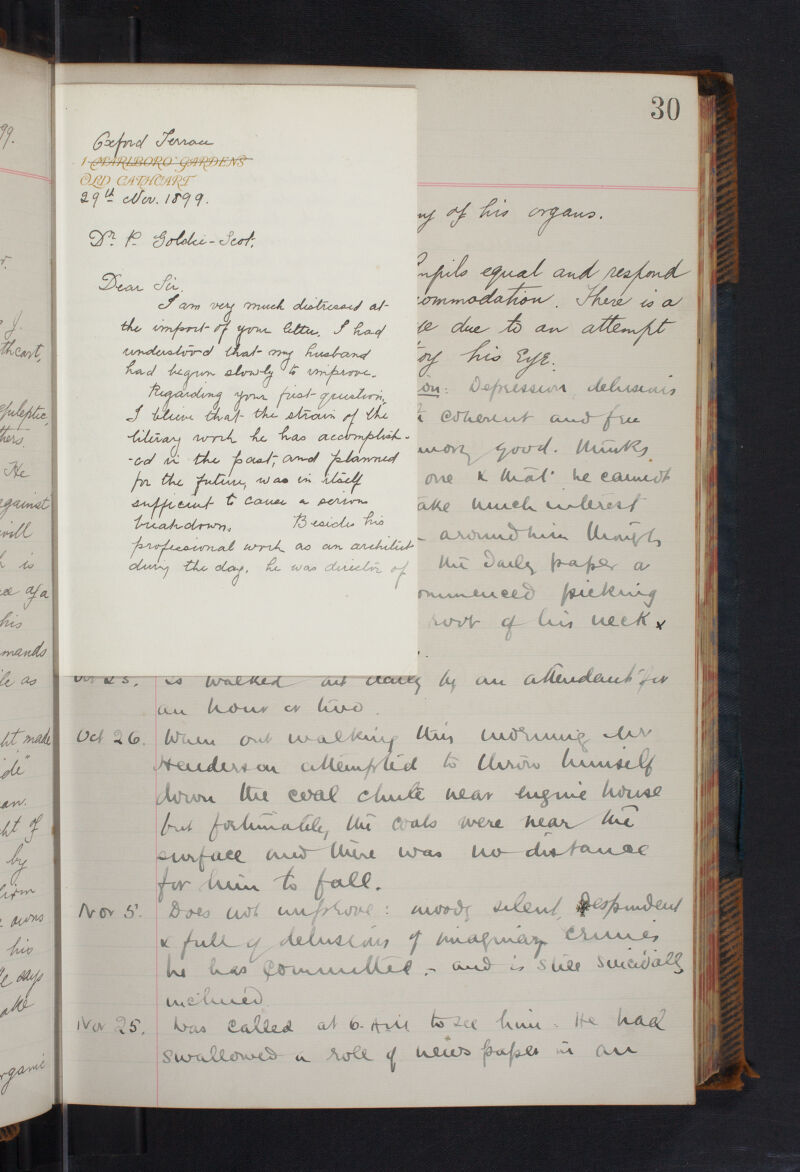 30
Oxford Terrace
1 MARLBORO' GARDENS
OLD CATHCART
29th Nov. 1899.
Dr. P. Goldie-Scot.
Dear Sir.
I am very much distressed at
the import of your letter. I had
understood that my husband
had begun slowly to improve.
Regarding your first question,
I believe that the strain of the
literary work he has accomplish-
-ed in the past, and planned
for the future, was in itself
sufficient to cause a serious
breakdown. Besides his
professional work as an architect
during the day, he was director of
of his organs.
Pupils equal and respond
commodation. There is a
due to an attempt
his Eye.
on: Depression, delusions
coherent and free
good. Thinks
one & that he cannot
take much interest
around him though
the daily paper a
commenced picking
root of his neck &
25. Is walked out daily by an attendant for
an hour or two.
Oct 26. When out walking this morning Mr
Henderson attempted to throw himself
down the coal chute near engine house
but fortunately the coals were near the
surface and there was no distance
for him to fall.
Nov 5. Does not improve: moody silent, despondent
& full of delusions of imaginary crimes
he has committed - and is still suicidally
inclined.
Nov 25. Was called at 6. to see him. He had
swallowed a role of newspaper in an
99.
thcart,
epileptic,
thers.
He
against
will
h is
his
mands
le as
ht made
an.
ht of
by
firm
owns
his
says
organic